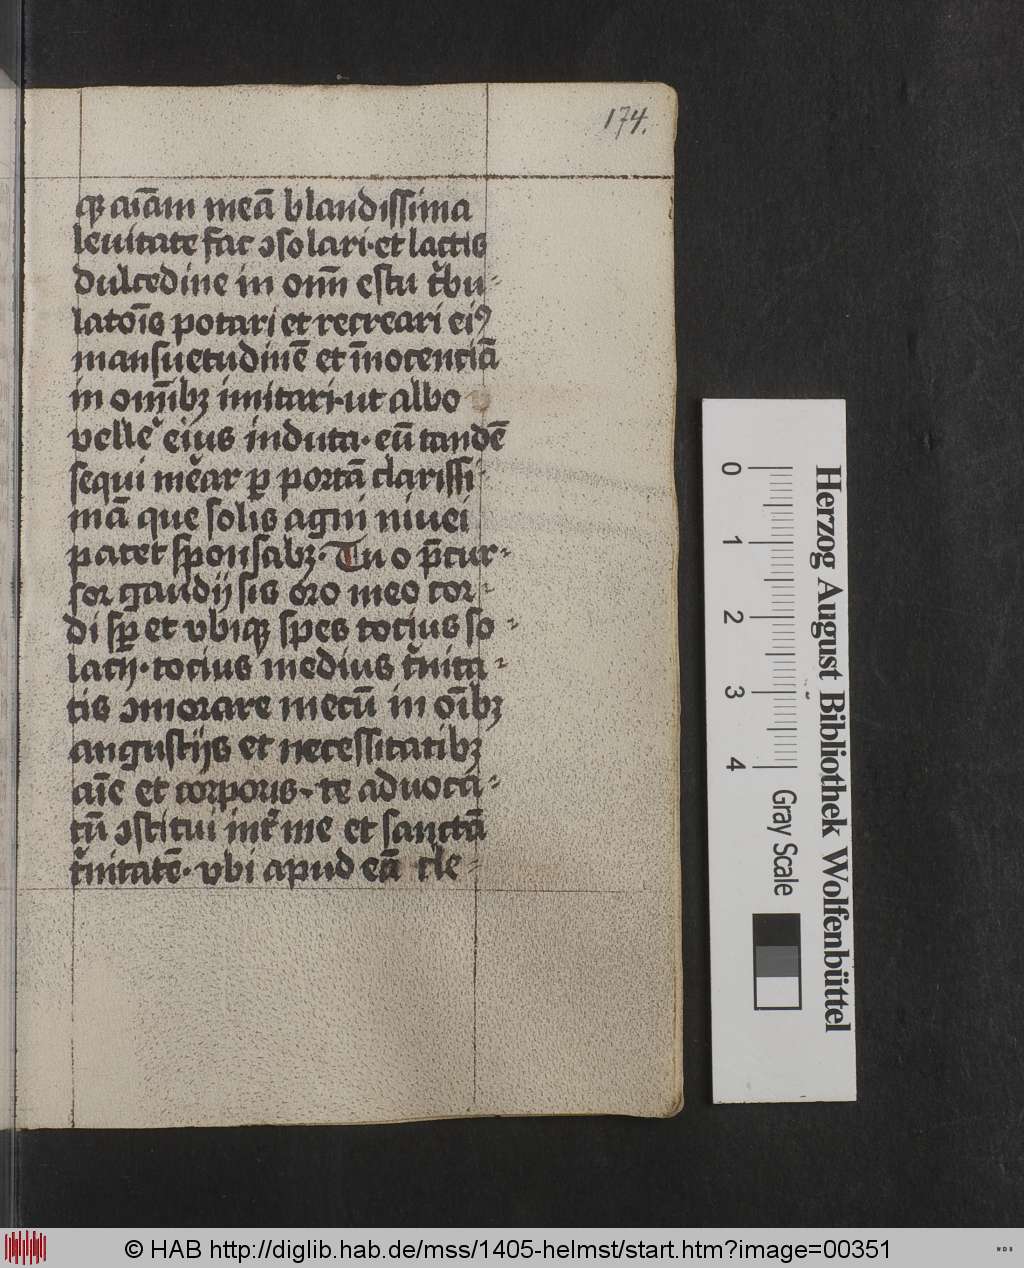 174.
qꝫ aīam meā blandissima
leuitate fac ↄsolari·et lactis
dulcedine in om̄i estu t̛bu-
latōis potari et recreari eiꝰ
mansuetudinē et īnocenciā
in om̄ibꝫ imitari·ut albo
velle͛ eius induta·eū tandē
sequi me͛ar ꝑ portā clarissi-
mā que solis agni niuei
patet sponsabꝫ·Tu o p̄cur-
sor gaudij sis oro meo cor-
di sꝑ et vbiqꝫ spes tocius so-
lacij·tocius medius t̛nita-
tis ↄmorare mecū in oībꝫ
angustijs et necessitatibꝫ
aīe et corporis·te aduoca-
tū ↄstitui int̛ me et sanctā
t̛nitatē·vbi apud eā cle-
0 1 2 3 4
Gray Scale
Herzog August Bibliothek Wolfenbüttel
© HAB http://diglib.hab.de/mss/1405-helmst/start.htm?image=00351